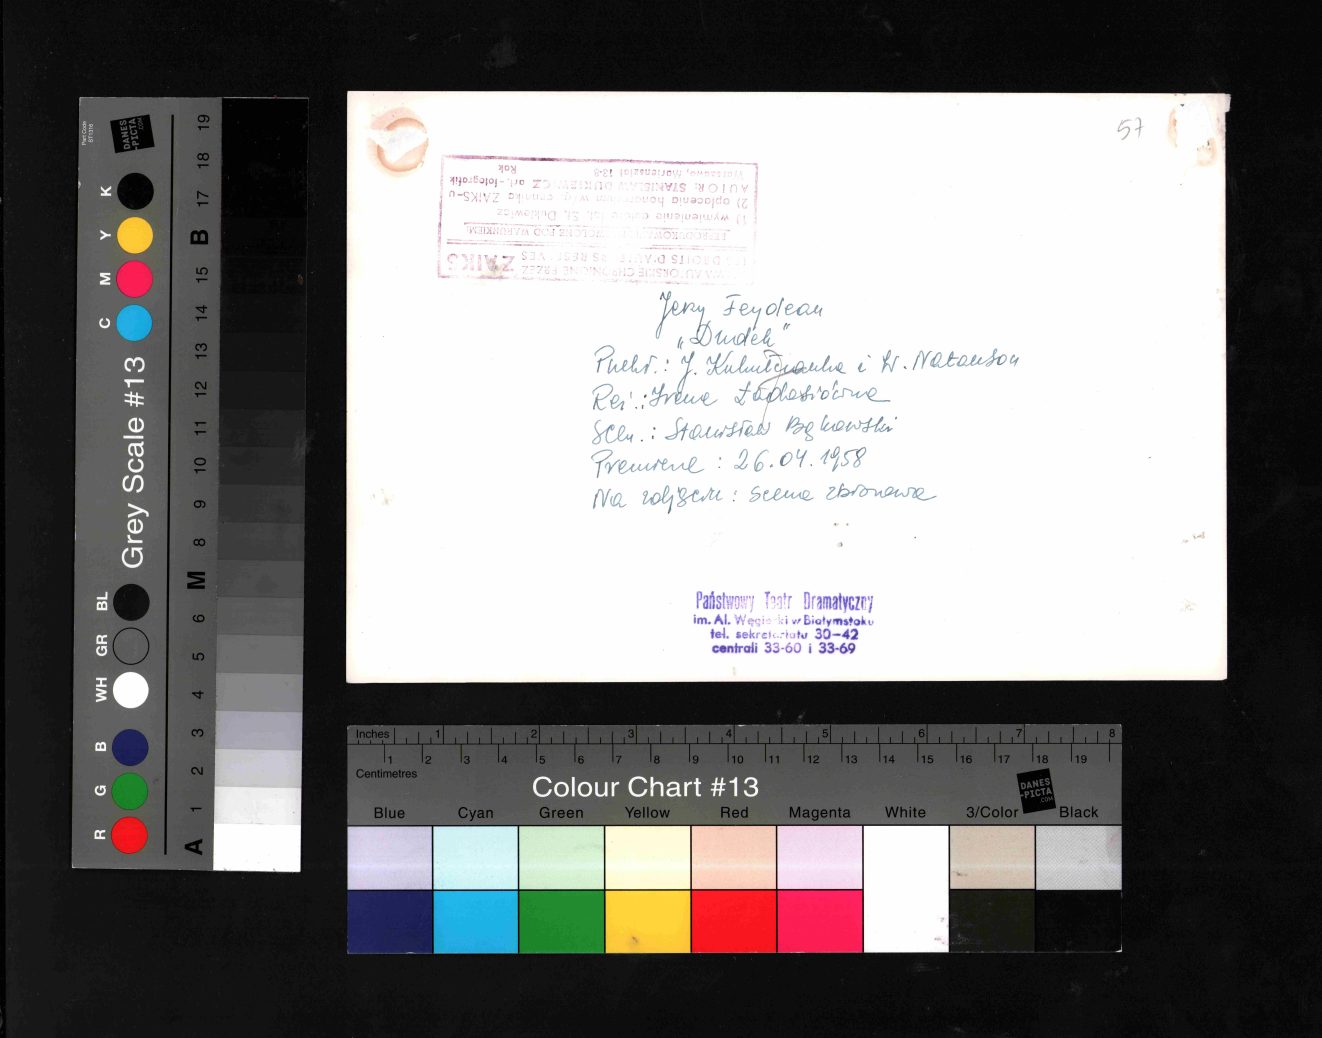 57
PRAWA AUTORSKIE CHRONIONE PRZEZ
ZAIKS
REPRODUKOWANIE DOZWOLONE POD WARUNKIEM:
1) wymienienie autora fot. St. Dukiewicz
2) opłacenia honorarium wdg. cennika ZAIKS-u
AUTOR: STANISŁAW DUKIEWICZ art.-fotografik
Warszawa, Mariensztat 13-8
Rok
Jerzy Feydeau
„Dudek"
Przekł.: J. i W. Natanson
Reż.: Irena
Scen.: Stanisław Bąkowski
Premiera: 26.04.1958
Na zdjęciu: scena zbiorowa
Państwowy Teatr Dramatyczny
im. Al. Węgierki w Białymstoku
tel. sekretariatu 30-42
centrali 33-60 i 33-69
Part Code
DANES
-PICTA
.COM
Grey Scale #13
K
Y
M
C
BL
GR
WH
B
G
R
19
18
17
B
15
14
13
12
11
10
9
8
M
6
5
4
3
2
1
A
Inches 1 2 3 4 5 6 7 8
1 2 3 4 5 6 7 8 9 10 11 12 13 14 15 16 17 18 19
Centimetres
Colour Chart #13
DANES
-PICTA
.COM
Blue Cyan Green Yellow Red Magenta White 3/Color Black